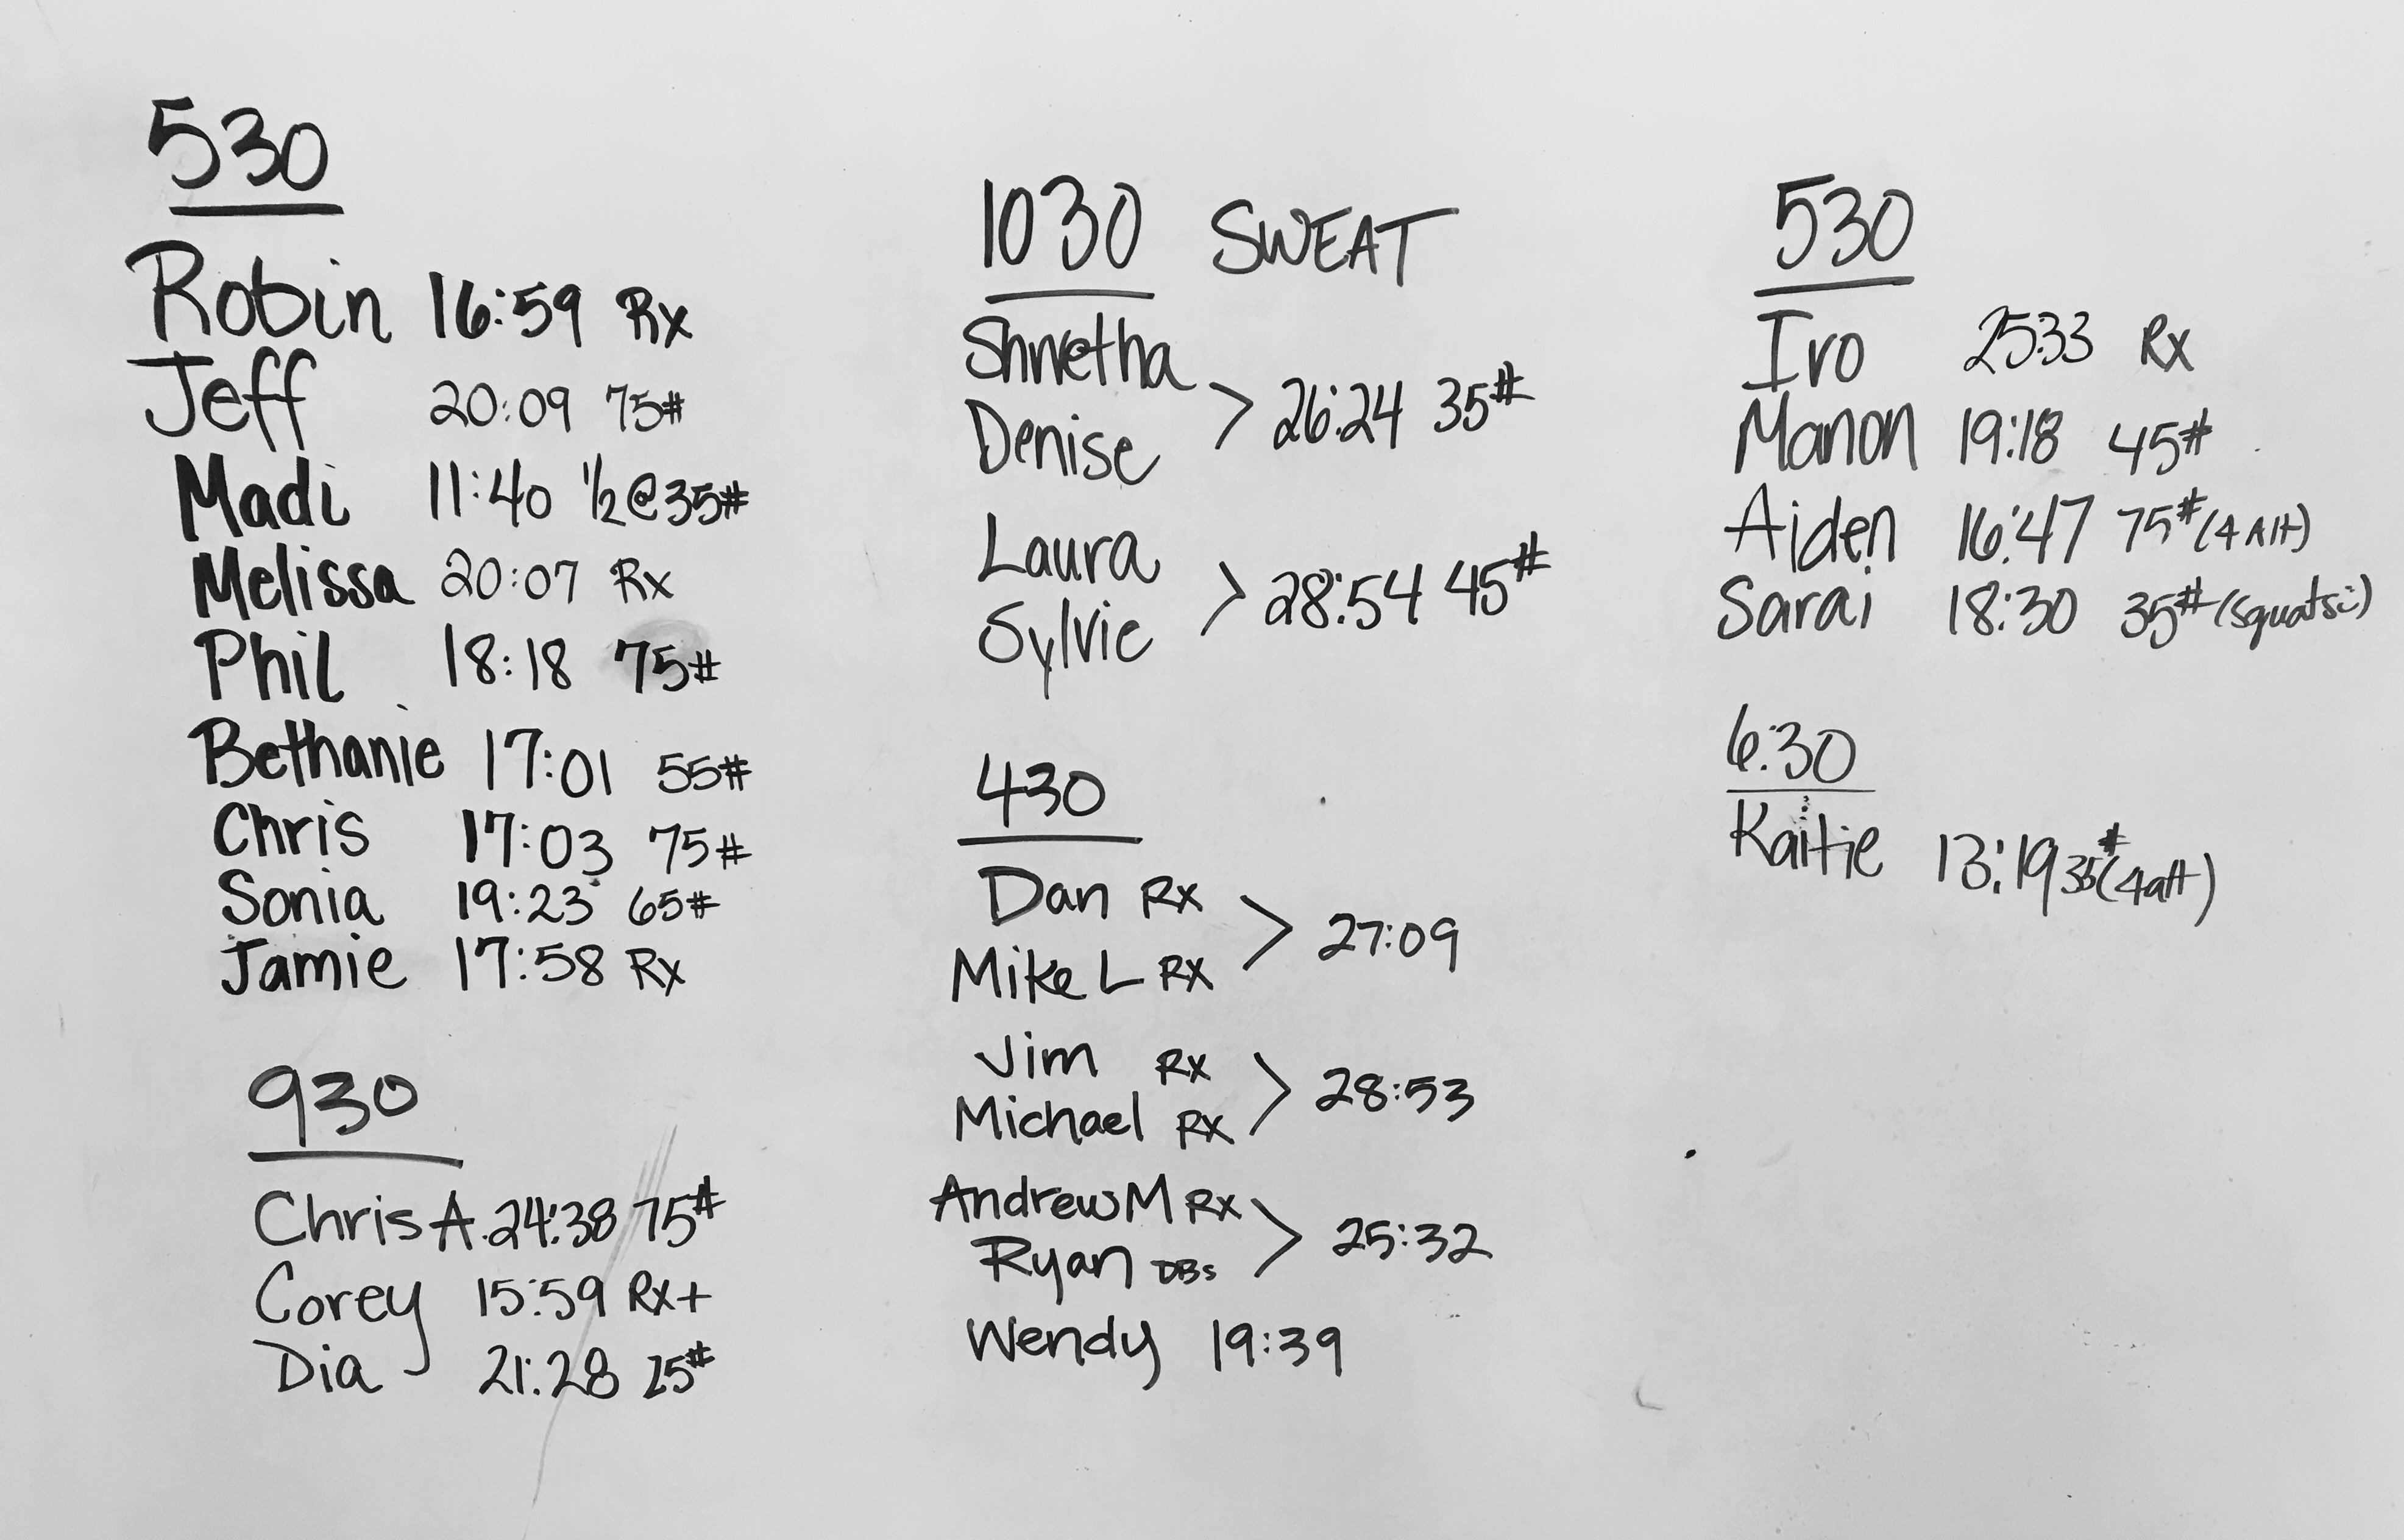 530
Robin 16:59 Rx
Jeff 20:09 75#
Madi 11:40 ½@35#
Melissa 20:07 Rx
Phil 18:18 75#
Bethanie 17:01 55#
Chris 17:03 75#
Sonia 19:23 65#
Jamie 17:58 Rx
930
Chris A. 24:38 75#
Corey 15:59 Rx+
Dia 21:28 25#
1030 SWEAT
Shwetha
Denise > 26:24 35#
Laura
Sylvie > 28:54 45#
430
Dan Rx
Mike L Rx > 27:09
Jim Rx
Michael Rx > 28:53
Andrew M Rx
Ryan DBs > 25:32
Wendy 19:39
530
Ivo 25:33 Rx
Manon 19:18 45#
Aiden 16:47 75# (4 Alt)
Sarai 18:30 35# (squats:)
6:30
Kaitie 13:19 35# (4alt)